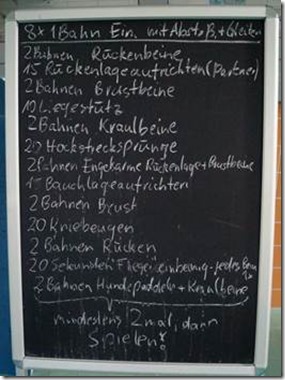 8x 1 Bahn Ein. mit Abst. B. + Gleiten
2 Bahnen Rückenbeine
15 Rückenlageaufrichten (Partner)
2 Bahnen Brustbeine
10 Liegestütz
2 Bahnen Kraulbeine
20 Hockstrecksprünge
2 Bahnen Enge Arme Rückenlage + Brustbeine
15 Bauchlageaufrichten
2 Bahnen Brust
20 Kniebeugen
2 Bahnen Rücken
20 Sekunden Flieger einbeinig - jedes Bein 1x
2 Bahnen Hundepaddeln + Kraulbeine
mindestens 2 mal, dann
Spielen!